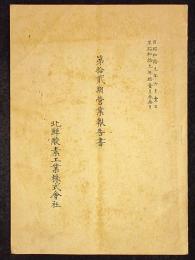 自昭和拾九年六月壱日
至昭和拾九年拾壱月参拾日
第拾貳期營業報告書
北鮮酸素工業株式會社